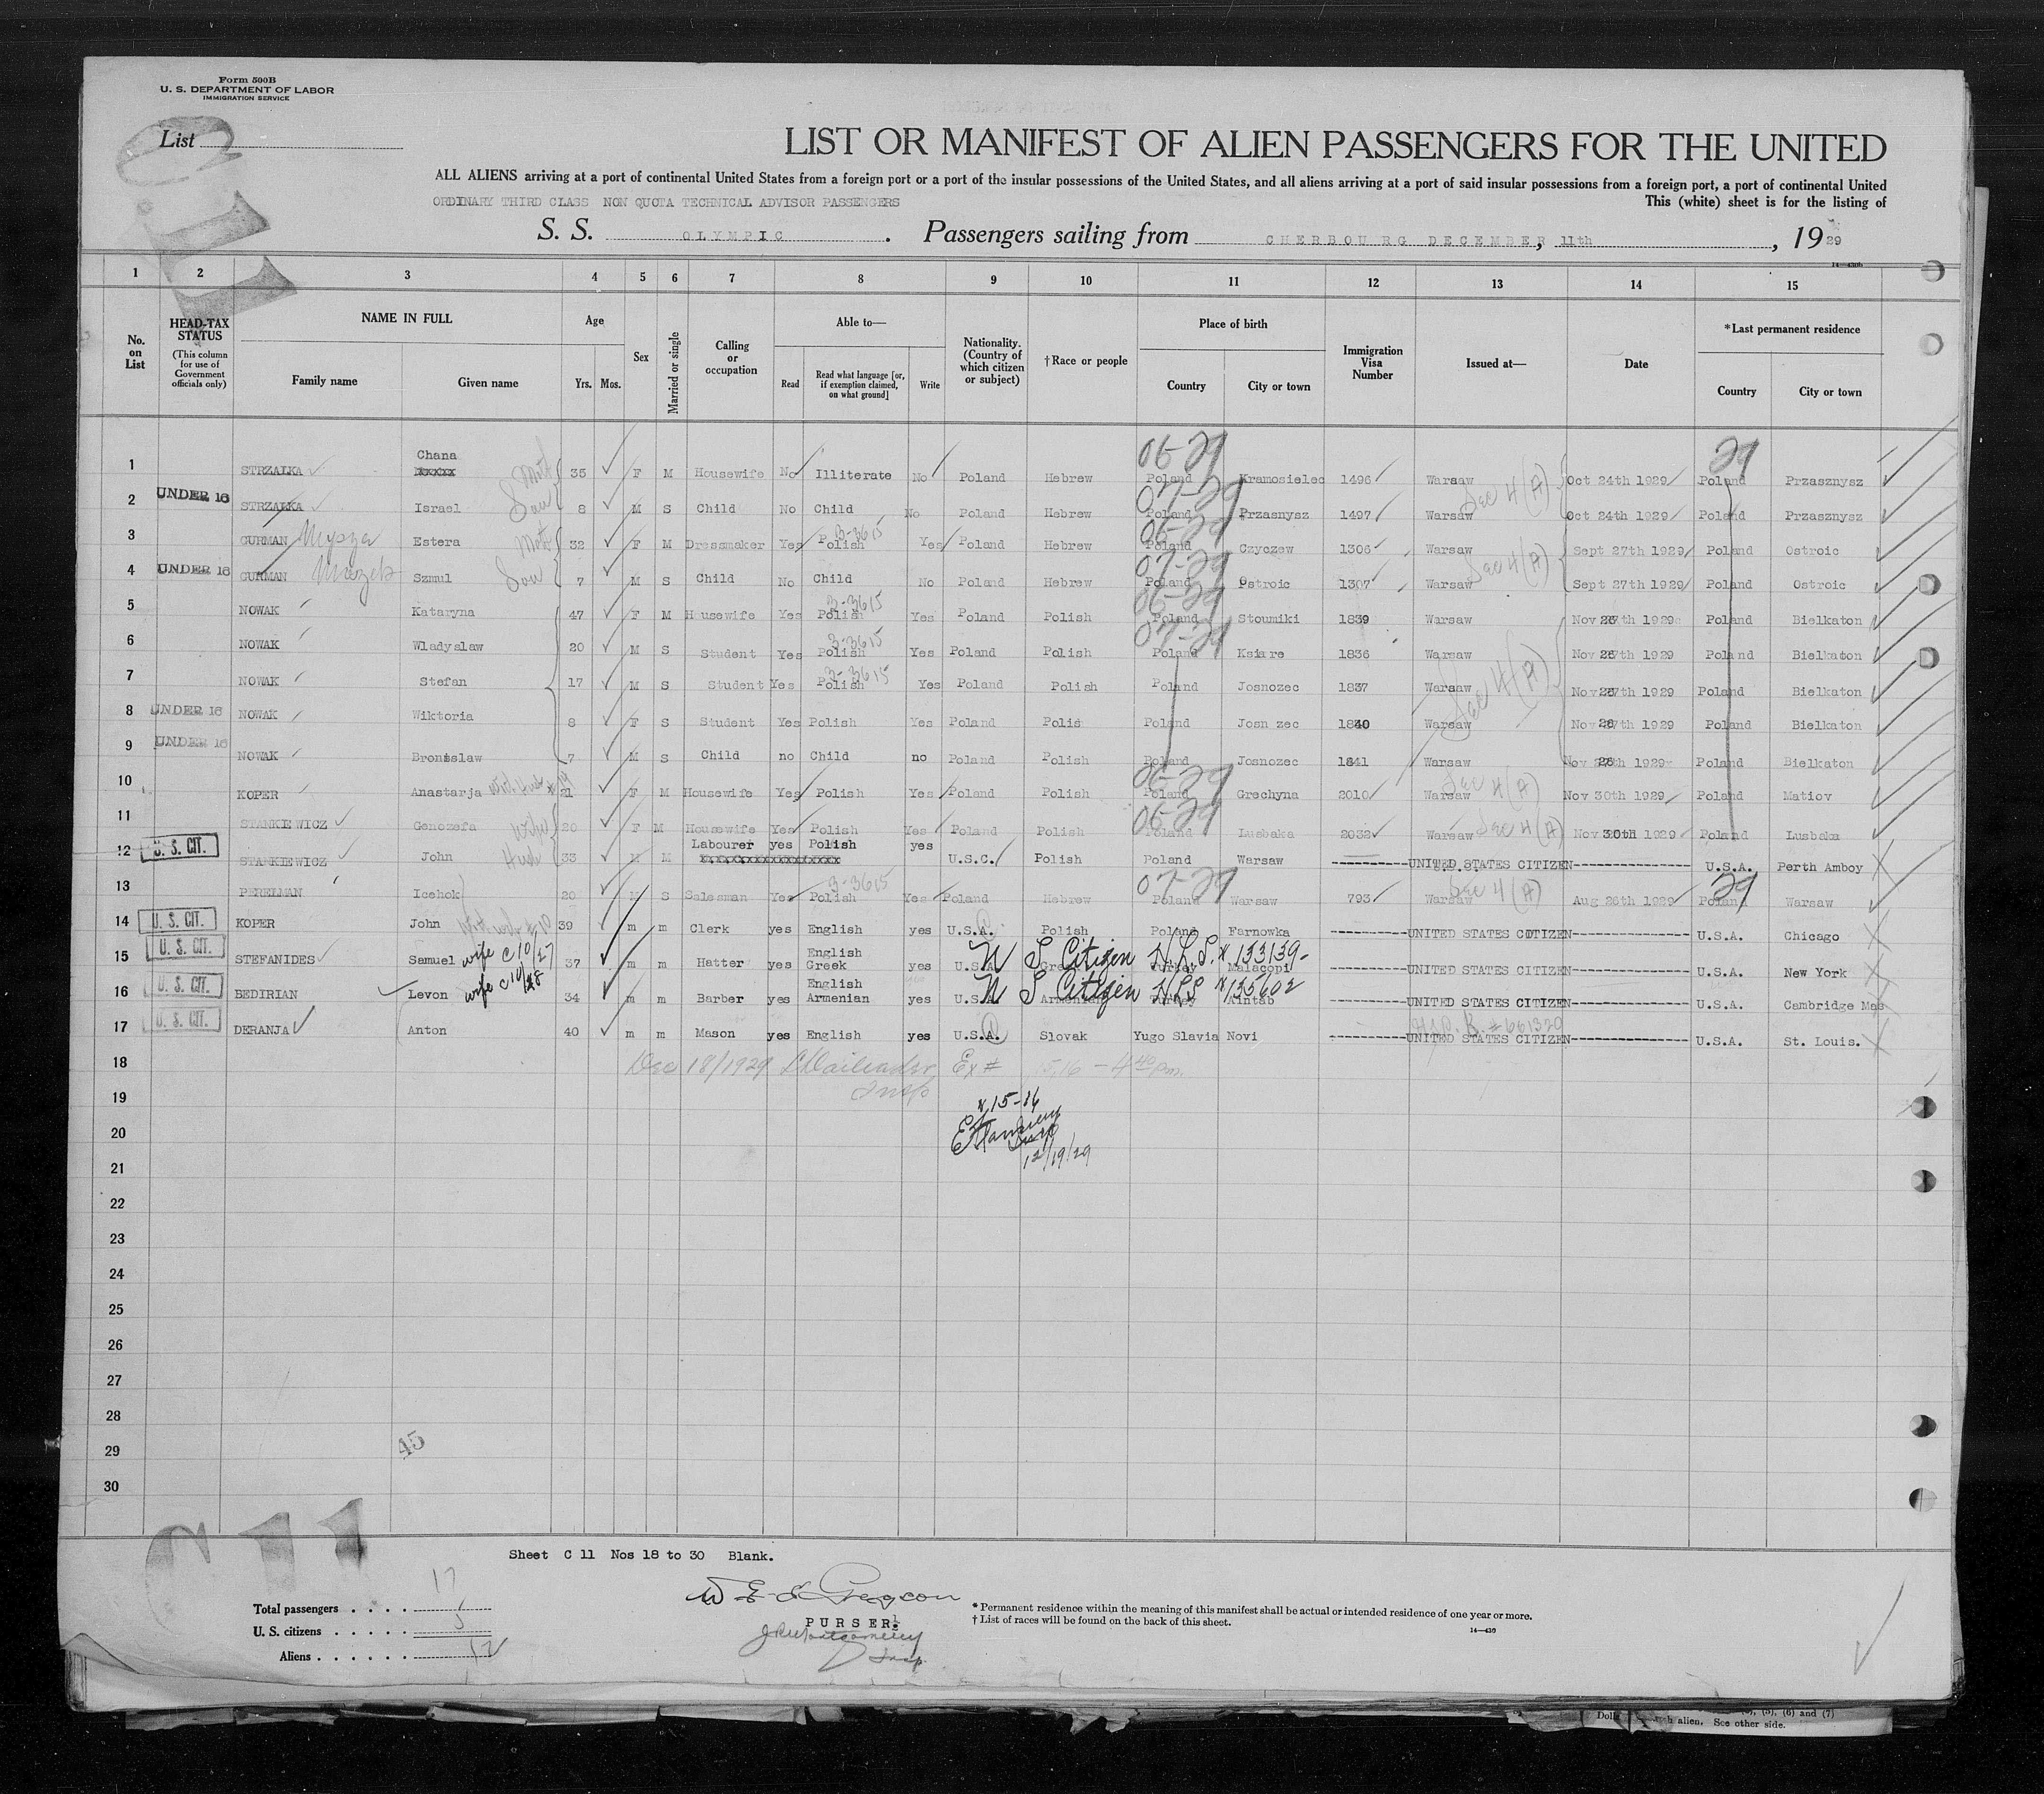 Form 500B
U. S. DEPARTMENT OF LABOR
IMMIGRATION SERVICE
List
LIST OR MANIFEST OF ALIEN PASSENGERS FOR THE UNITED
ALL ALIENS arriving at a port of continental United States from a foreign port or a port of the insular possessions of the United States, and all aliens arriving at a port of said insular possessions from a foreign port, a port of continental United
ORDINARY THIRD CLASS NON QUOTA TECHNICAL ADVISOR PASSENGERS This (white) sheet is for the listing of
S. S. OLYMPIC. Passengers sailing from CHERBOURG DECEMBER, 11th, 1929
14—430b
1 2 3 4 5 6 7 8 9 10 11 12 13 14 15
No. on List
HEAD-TAX STATUS (This column for use of Government officials only)
NAME IN FULL
Family name
Given name
Age
Yrs. Mos.
Sex
Married or single
Calling or occupation
Able to—
Read
Read what language [or, if exemption claimed, on what ground]
Write
Nationality. (Country of which citizen or subject)
† Race or people
Place of birth
Country
City or town
Immigration Visa Number
Issued at—
Date
*Last permanent residence
Country
City or town
06-29 29
1 STRZALKA Chana 35 F M Housewife No Illiterate No Poland Hebrew Poland Kramosielec 1496 Warsaw Sec 4 (A) Oct 24th 1929 Poland Przasznysz
07-29
2 UNDER 16 STRZALKA Israel Son 8 M S Child No Child No Poland Hebrew Poland Przasnysz 1497 Warsaw Oct 24th 1929 Poland Przasznysz
3-3615 06-29
3 GURMAN Estera 32 F M Dressmaker Yes Polish Yes Poland Hebrew Poland Czyczew 1306 Warsaw Sec 4 (A) Sept 27th 1929 Poland Ostroic
07-29
4 UNDER 16 GURMAN Szmul Son 7 M S Child No Child No Poland Hebrew Poland Ostroic 1307 Warsaw Sept 27th 1929 Poland Ostroic
3-3615 06-29
5 NOWAK Kataryna 47 F M Housewife Yes Polish Yes Poland Polish Poland Stoumiki 1839 Warsaw Nov 26th 1929 Poland Bielkaton
3-3615 07-29
6 NOWAK Wladyslaw 20 M S Student Yes Polish Yes Poland Polish Poland Ksiare 1836 Warsaw Nov 26th 1929 Poland Bielkaton
3-3615
7 NOWAK Stefan 17 M S Student Yes Polish Yes Poland Polish Poland Josnozec 1837 Warsaw Sec 4 (A) Nov 26th 1929 Poland Bielkaton
8 UNDER 16 NOWAK Wiktoria 8 F S Student Yes Polish Yes Poland Polis Poland Josn zec 1840 Warsaw Nov 26th 1929 Poland Bielkaton
9 UNDER 16 NOWAK Bronislaw 7 M S Child no Child no Poland Polish Poland Josnozec 1841 Warsaw Nov 26th 1929 Poland Bielkaton
06-29
10 KOPER Anastarja 21 F M Housewife Yes Polish Yes Poland Polish Poland Grechyna 2010 Warsaw Sec 4 (A) Nov 30th 1929 Poland Matiov
06-29
11 STANKIEWICZ Genozefa Wife 20 F M Housewife Yes Polish Yes Poland Polish Poland Lusbaka 2032 Warsaw Sec 4 (A) Nov 30th 1929 Poland Lusbaka
12 U. S. CIT. STANKIEWICZ John Husb 33 M M Labourer yes Polish yes U.S.C. Polish Poland Warsaw ----------UNITED STATES CITIZEN---------------- U.S.A. Perth Amboy
3-3615 07-29 29
13 PERELMAN Icehok 20 M S Salesman Yes Polish Yes Poland Hebrew Poland Warsaw 793 Warsaw Sec 4 (A) Aug 28th 1929 Poland Warsaw
14 U. S. CIT. KOPER John 39 m m Clerk yes English yes U.S.A. Polish Poland Farnowka ----------UNITED STATES CITIZEN---------------- U.S.A. Chicago
15 U. S. CIT. STEFANIDES Samuel wife C10/27 37 m m Hatter yes English Greek yes U.S.A. Turkey Malacopi ----------UNITED STATES CITIZEN---------------- U.S.A. New York
U S Citizen #133139-
16 U. S. CIT. BEDIRIAN Levon wife C10/28 34 m m Barber yes English Armenian yes U.S.A. Armenian Turkey Aintab ----------UNITED STATES CITIZEN---------------- U.S.A. Cambridge Mas
U S Citizen #135602
17 U. S. CIT. DERANJA Anton 40 m m Mason yes English yes U.S.A. Slovak Yugo Slavia Novi ----------UNITED STATES CITIZEN---------------- U.S.A. St. Louis.
#661320
18 Dec 18/1929 Insp Ex # 15,16 - 4 40 pm.
19 # 15-16
20 Insp 12/19/29
21
22
23
24
25
26
27
28
29
30
45
C 11
Sheet C 11 Nos 18 to 30 Blank.
PURSER.
Total passengers . . . . 17
U. S. citizens . . . . . 5
Aliens . . . . . . 12
* Permanent residence within the meaning of this manifest shall be actual or intended residence of one year or more.
† List of races will be found on the back of this sheet.
14—430
J R Montgomery
Insp.
(5), (6) and (7)
alien. See other side.